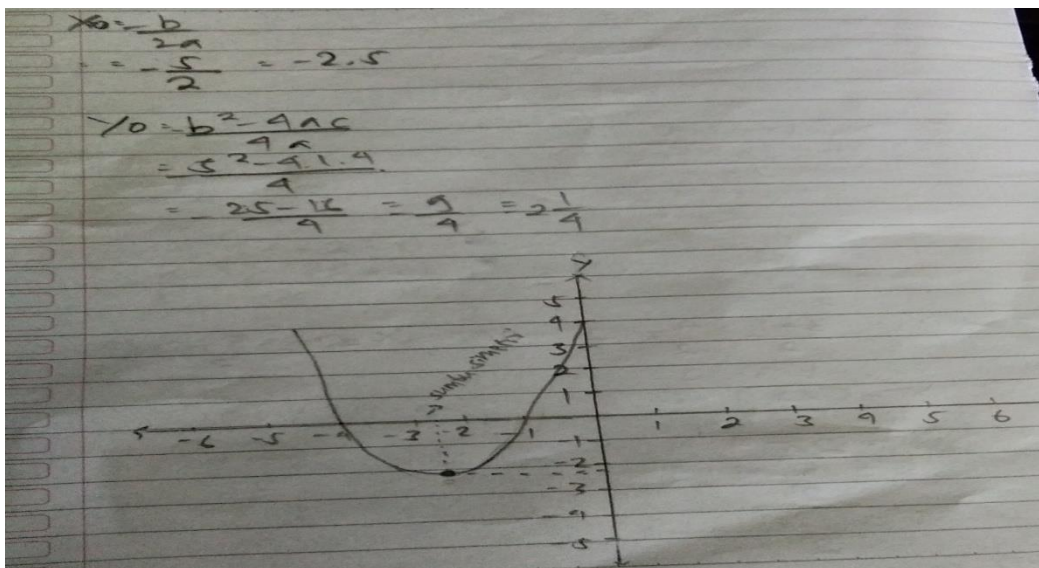 x₀ = -b/2a
= -5/2 = -2.5
y₀ = b² - 4ac/4a
= 5² - 4.1.4/4
= - 25 - 16/4 = 9/4 = 2 1/4
y
5
4
sumbu simetri
3
2
1
-6 -5 -4 -3 -2 -1 1 2 3 4 5 6
-1
-2
-3
-4
-5